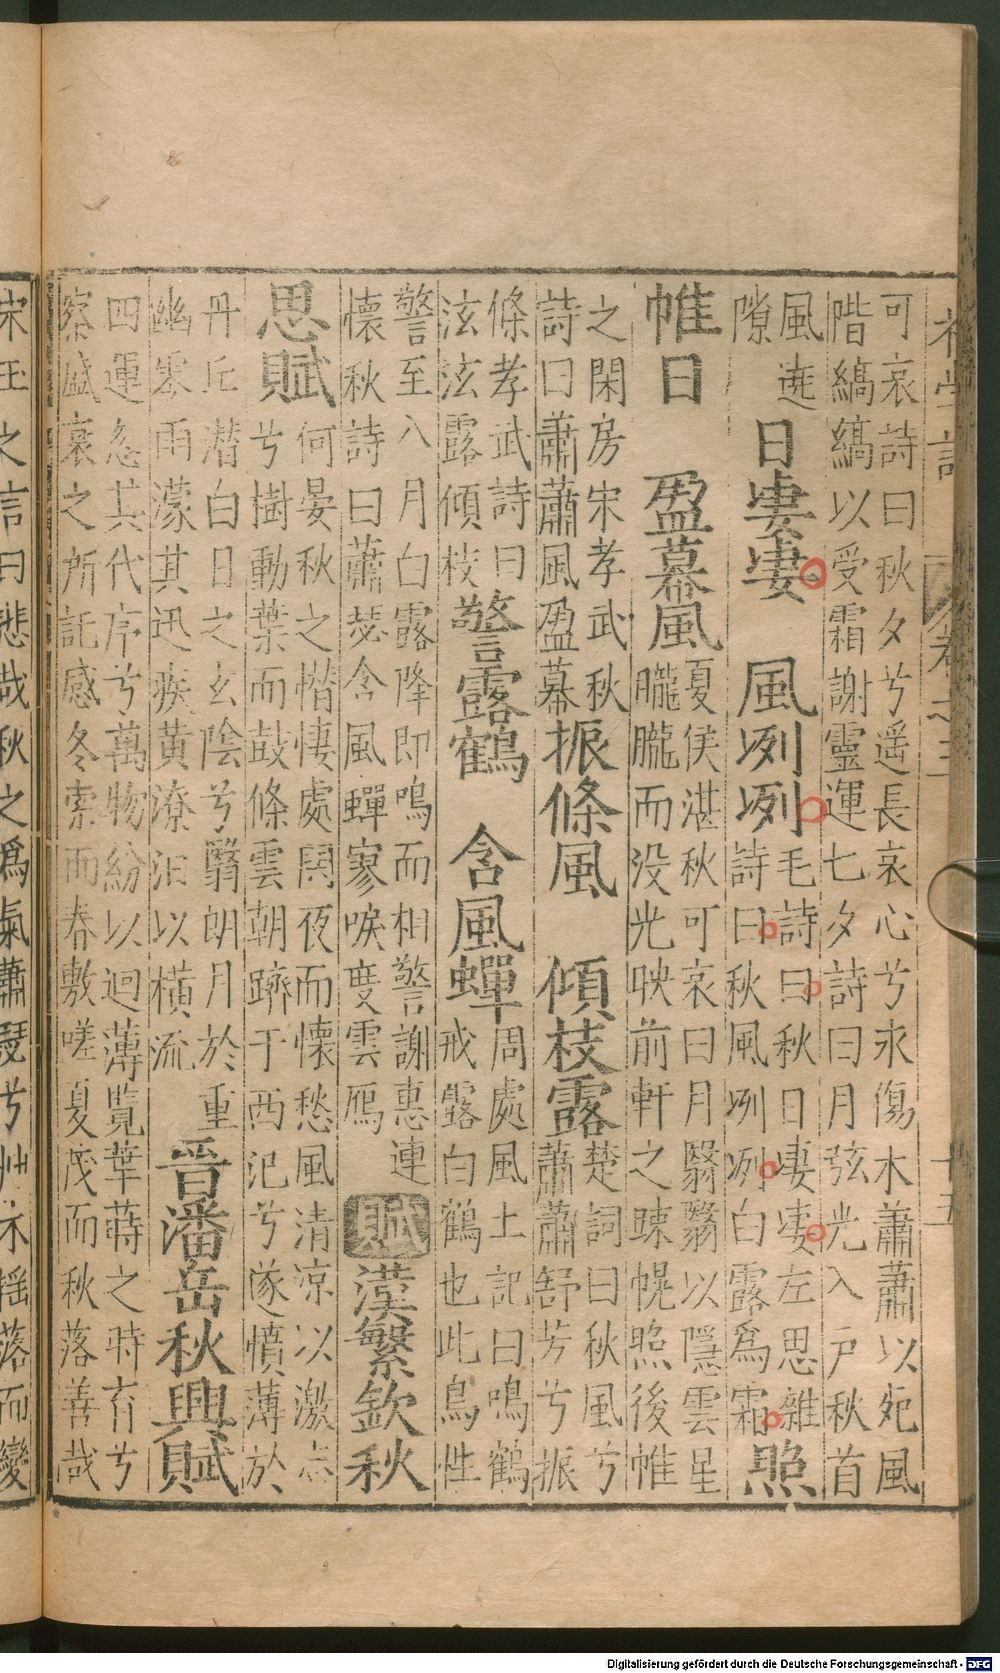 初學記 卷之三 十五
可哀詩曰秋夕兮遥長哀心兮永傷木蕭蕭以宛風
階縞縞以受霜謝靈運七夕詩曰月弦光入戸秋首
風遶
隙
日凄凄 風冽冽
毛詩曰秋日凄凄左思雜
詩曰秋風冽冽白露爲霜
照
帷日 盈幕風
夏侯湛秋可哀曰月翳翳以隱雲星
朧朧而没光映前軒之疎幌照後帷
之閑房宋孝武秋
詩曰蕭蕭風盈幕
振條風 傾枝露
楚詞曰秋風兮
蕭蕭舒芳兮振
條孝武詩曰
泫泫露傾枝
警露鶴 含風蟬
周處風土記曰鳴鶴
戒露白鶴也此鳥性
警至八月白露降即鳴而相警謝惠連
懷秋詩曰蕭瑟含風蟬寥唳度雲鴈
賦 漢繁欽秋
思賦
何晏秋之憯悽處閑夜而懷愁風清凉以激志
兮樹動葉而鼓條雲朝躋于西汜兮遂憤薄於
丹丘潜白日之玄陰兮翳朗月於重
幽寒雨濛其迅疾黄潦汩以横流
晋潘岳秋興賦
四運忽其代序兮萬物紛以迴薄覽華蒔之時育兮
察盛衰之所託感冬索而春敷嗟夏茂而秋落善哉
宋玉之言曰悲哉秋之爲氣蕭瑟兮艸木揺落而變
Digitalisierung gefördert durch die Deutsche Forschungsgemeinschaft - DFG